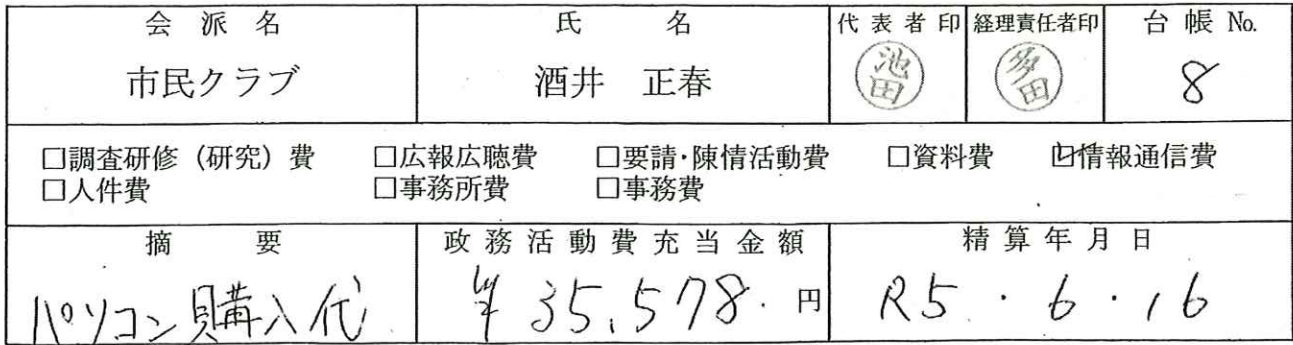 会派名 氏名 代表者印 経理責任者印 台帳No.
市民クラブ 酒井 正春 池田 多田 8
□調査研修（研究）費 □広報広聴費 □要請・陳情活動費 □資料費 ☑情報通信費
□人件費 □事務所費 □事務費
摘要 政務活動費充当金額 精算年月日
パソコン購入代 ¥35,578.円 R5・6・16